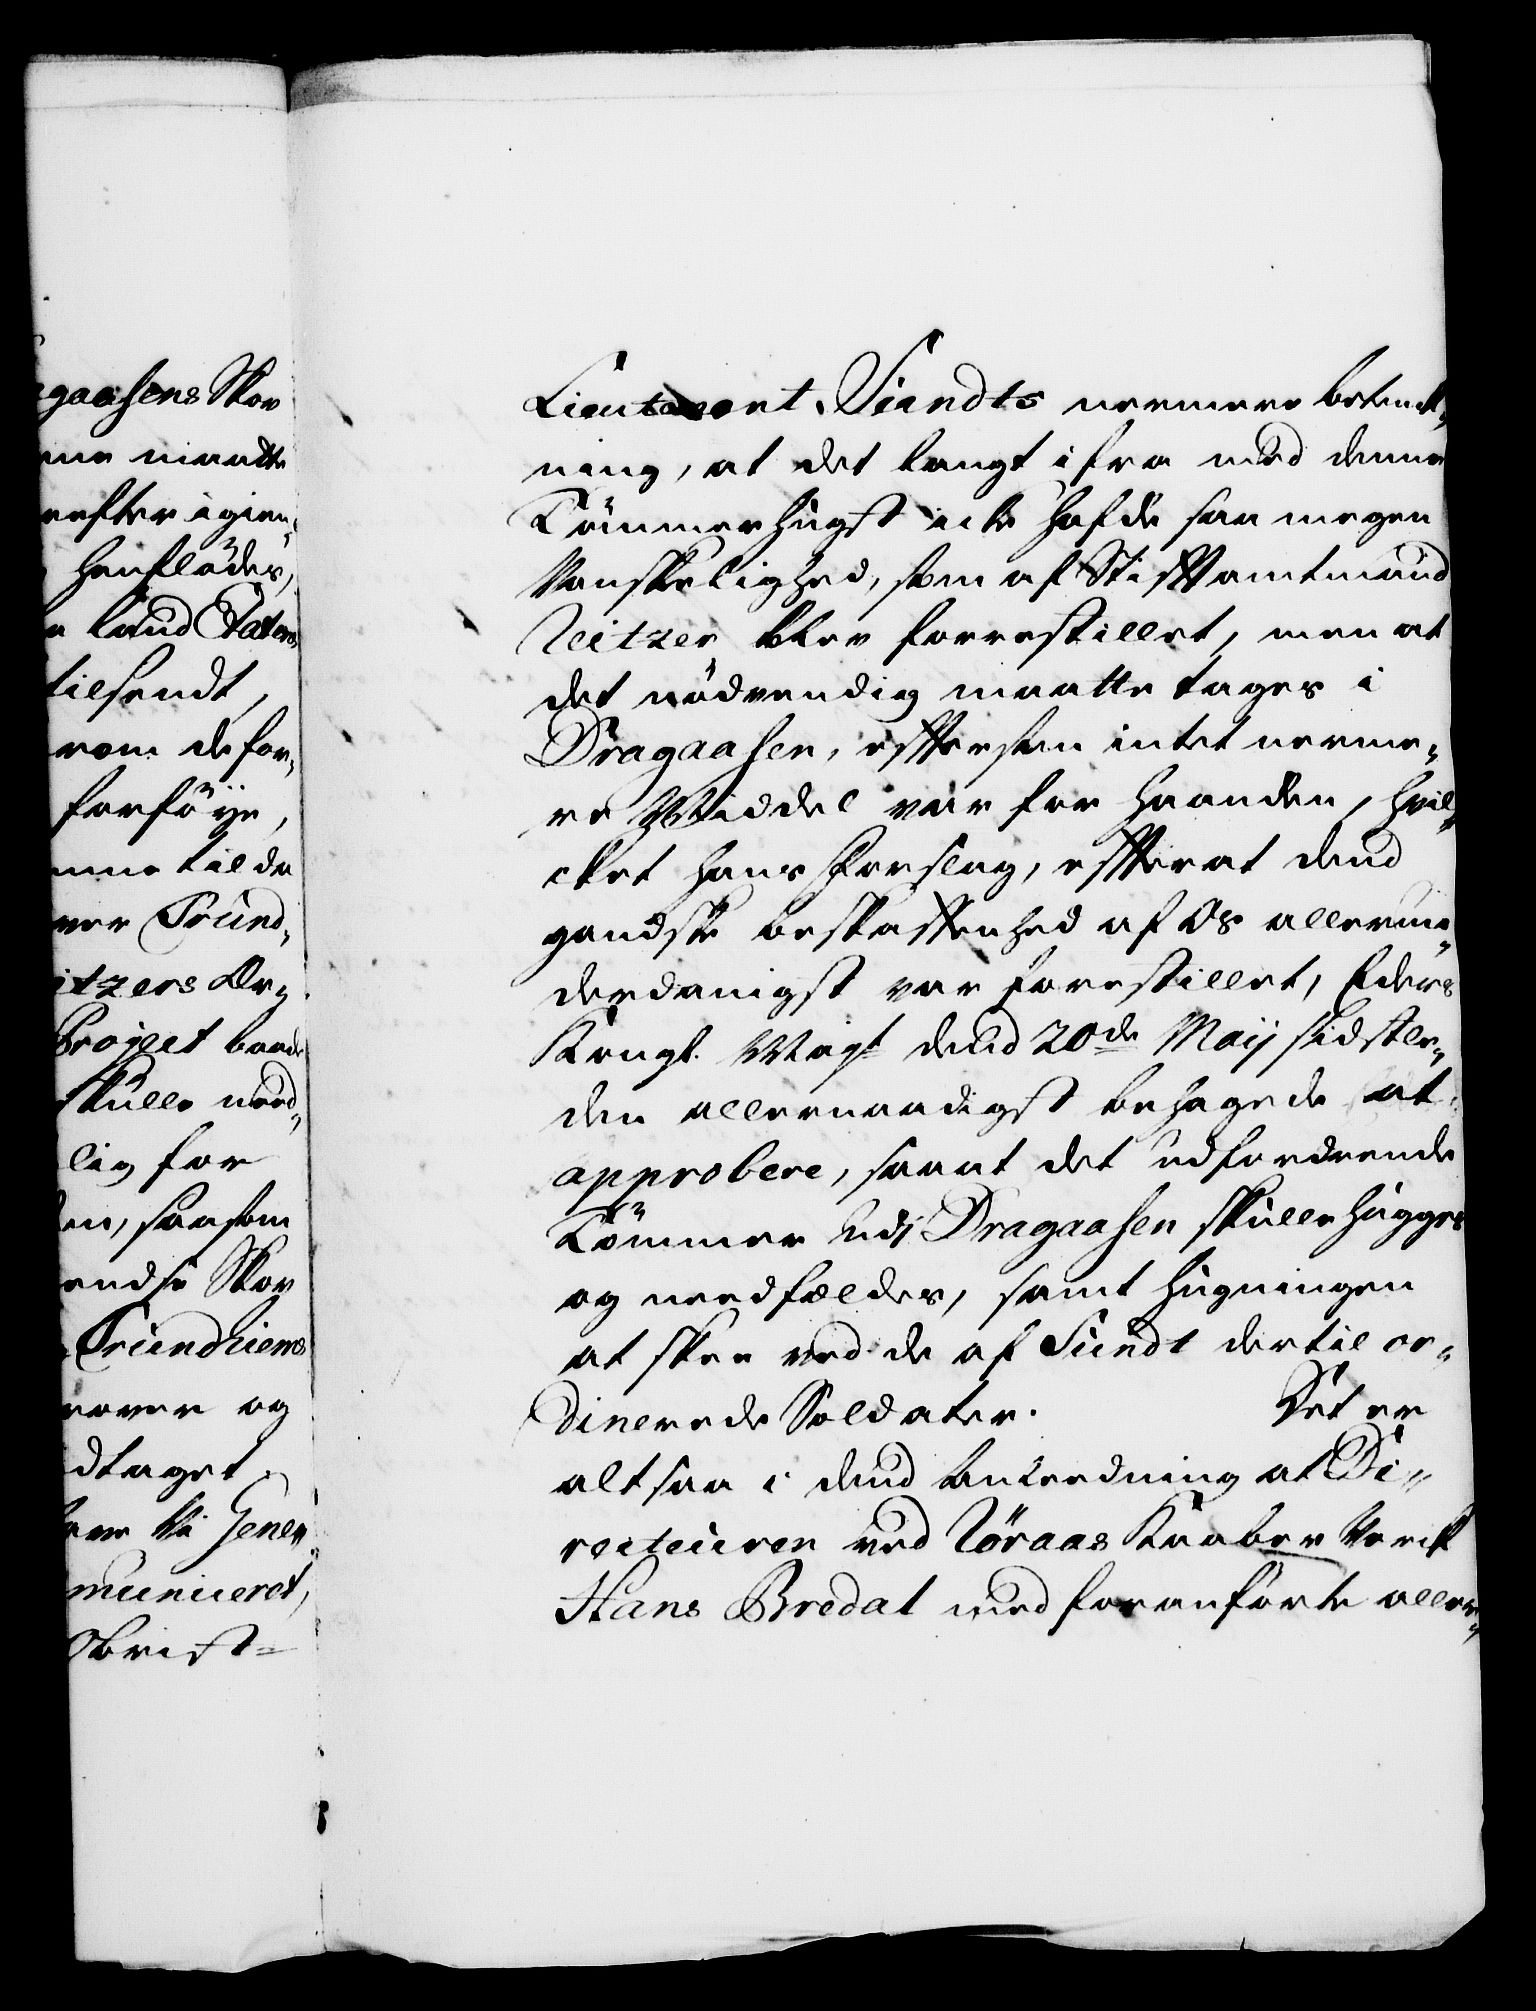 gaasens Skov
ene maatte
refter igien¬
henflødes,
laud Taters
tilsendt,
rom de for¬
forføye,
nne til de
ver Trund¬
itzers Er¬
Project baade
skulle need¬
lig for
en, saasom
endse Skov
Trundhiems
rover og
dtaget,
ve Vi Gener¬
municeret,
Obrist-
Lieutenant Sundts nermere betenck¬
ning, at det langt ifra med denne
Tømmerhugst icke hafde saa megen
Vanskelighed, som af Stiftamtmand
Neitzer blev forrestillet, men at
det nødvendig maatte tages i
Dragaasen, eftersom intet nerme¬
re Middel var for haanden, hvil¬
cket hans Forslag, efterat dend
gandske beskaffenhed af Os allerun¬
derdanigst var forestillet, Eders
Kongl. Mayt dend 20de Maij sidstle¬
den allernaadigst behagede at
approbere, saaat det udfordrende
Tømmer udj Dragaasen skulle hugges
og needfældes, samt hugningen
at skee ved de af Sundt dertil or¬
dinerede Soldater. Det er
altsaa i dend anleedning at Di¬
recteuren ved Røraas Kaaber Verck
Hans Bredal med foranførte aller¬